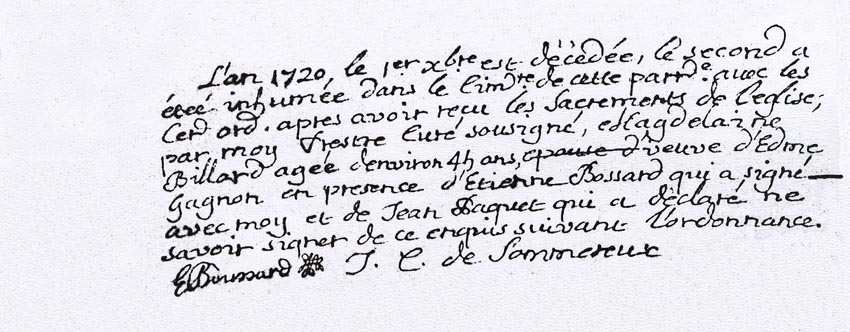 L'an 1720, le 1er xbre est décédée, le second a
étéé inhumée dans le cim^re de cette parr^e. avec les
Cer ord. apres avoir reçu les Sacrements de l'eglise;
par moy Prestre Curé sousigné, Magdelaine
Billard agée d'environ 45 ans, epouse d'veuve d'Edme
Gagnon en presence d'Etienne Bossard qui a signé
avec moy et de Jean Paquet qui a déclaré ne
savoir signer de ce enquis suivant l'ordonnance.
E Boussard J. C. de Sommereux